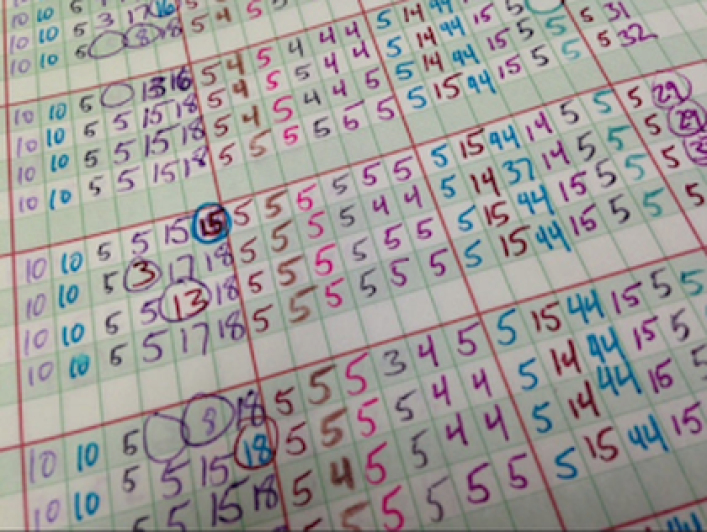 10 10 5
10 10 5 3 17 16 5
10 10 5 8 18 5 4 5
10 10 5 15 16 5 4 5 4 4 4 5 14 44 15 5 5 31
10 10 5 5 15 18 5 4 5 5 4 4 5 14 44 15 5 5 5 32
10 10 5 5 15 18 5 4 5 4 4 5 5 14 44 15 5 5
10 10 5 5 15 18 5 5 5 5 5 5 5 15 44 15 5 5
10 10 5 5 15 15 5 5 5 5 5 5 5 15 44 14 5 5 5 29
10 10 5 3 17 18 5 5 5 5 4 4 5 14 37 14 5 5 5 29
10 10 5 5 13 18 5 5 5 5 5 5 5 15 44 15 5 5 5
10 10 5 5 17 18 5 5 5 5 5 5 5 15 44 15 5 5 5
10 10 5 8 18 5 5 5 3 4 5 5 15 44 15 5 5
10 10 5 5 15 18 5 5 5 5 4 4 5 14 44 15 5
5 15 18 5 4 5 5 4 4 5 14 44 15 5
5 5 5 5 5 5 15 44 15